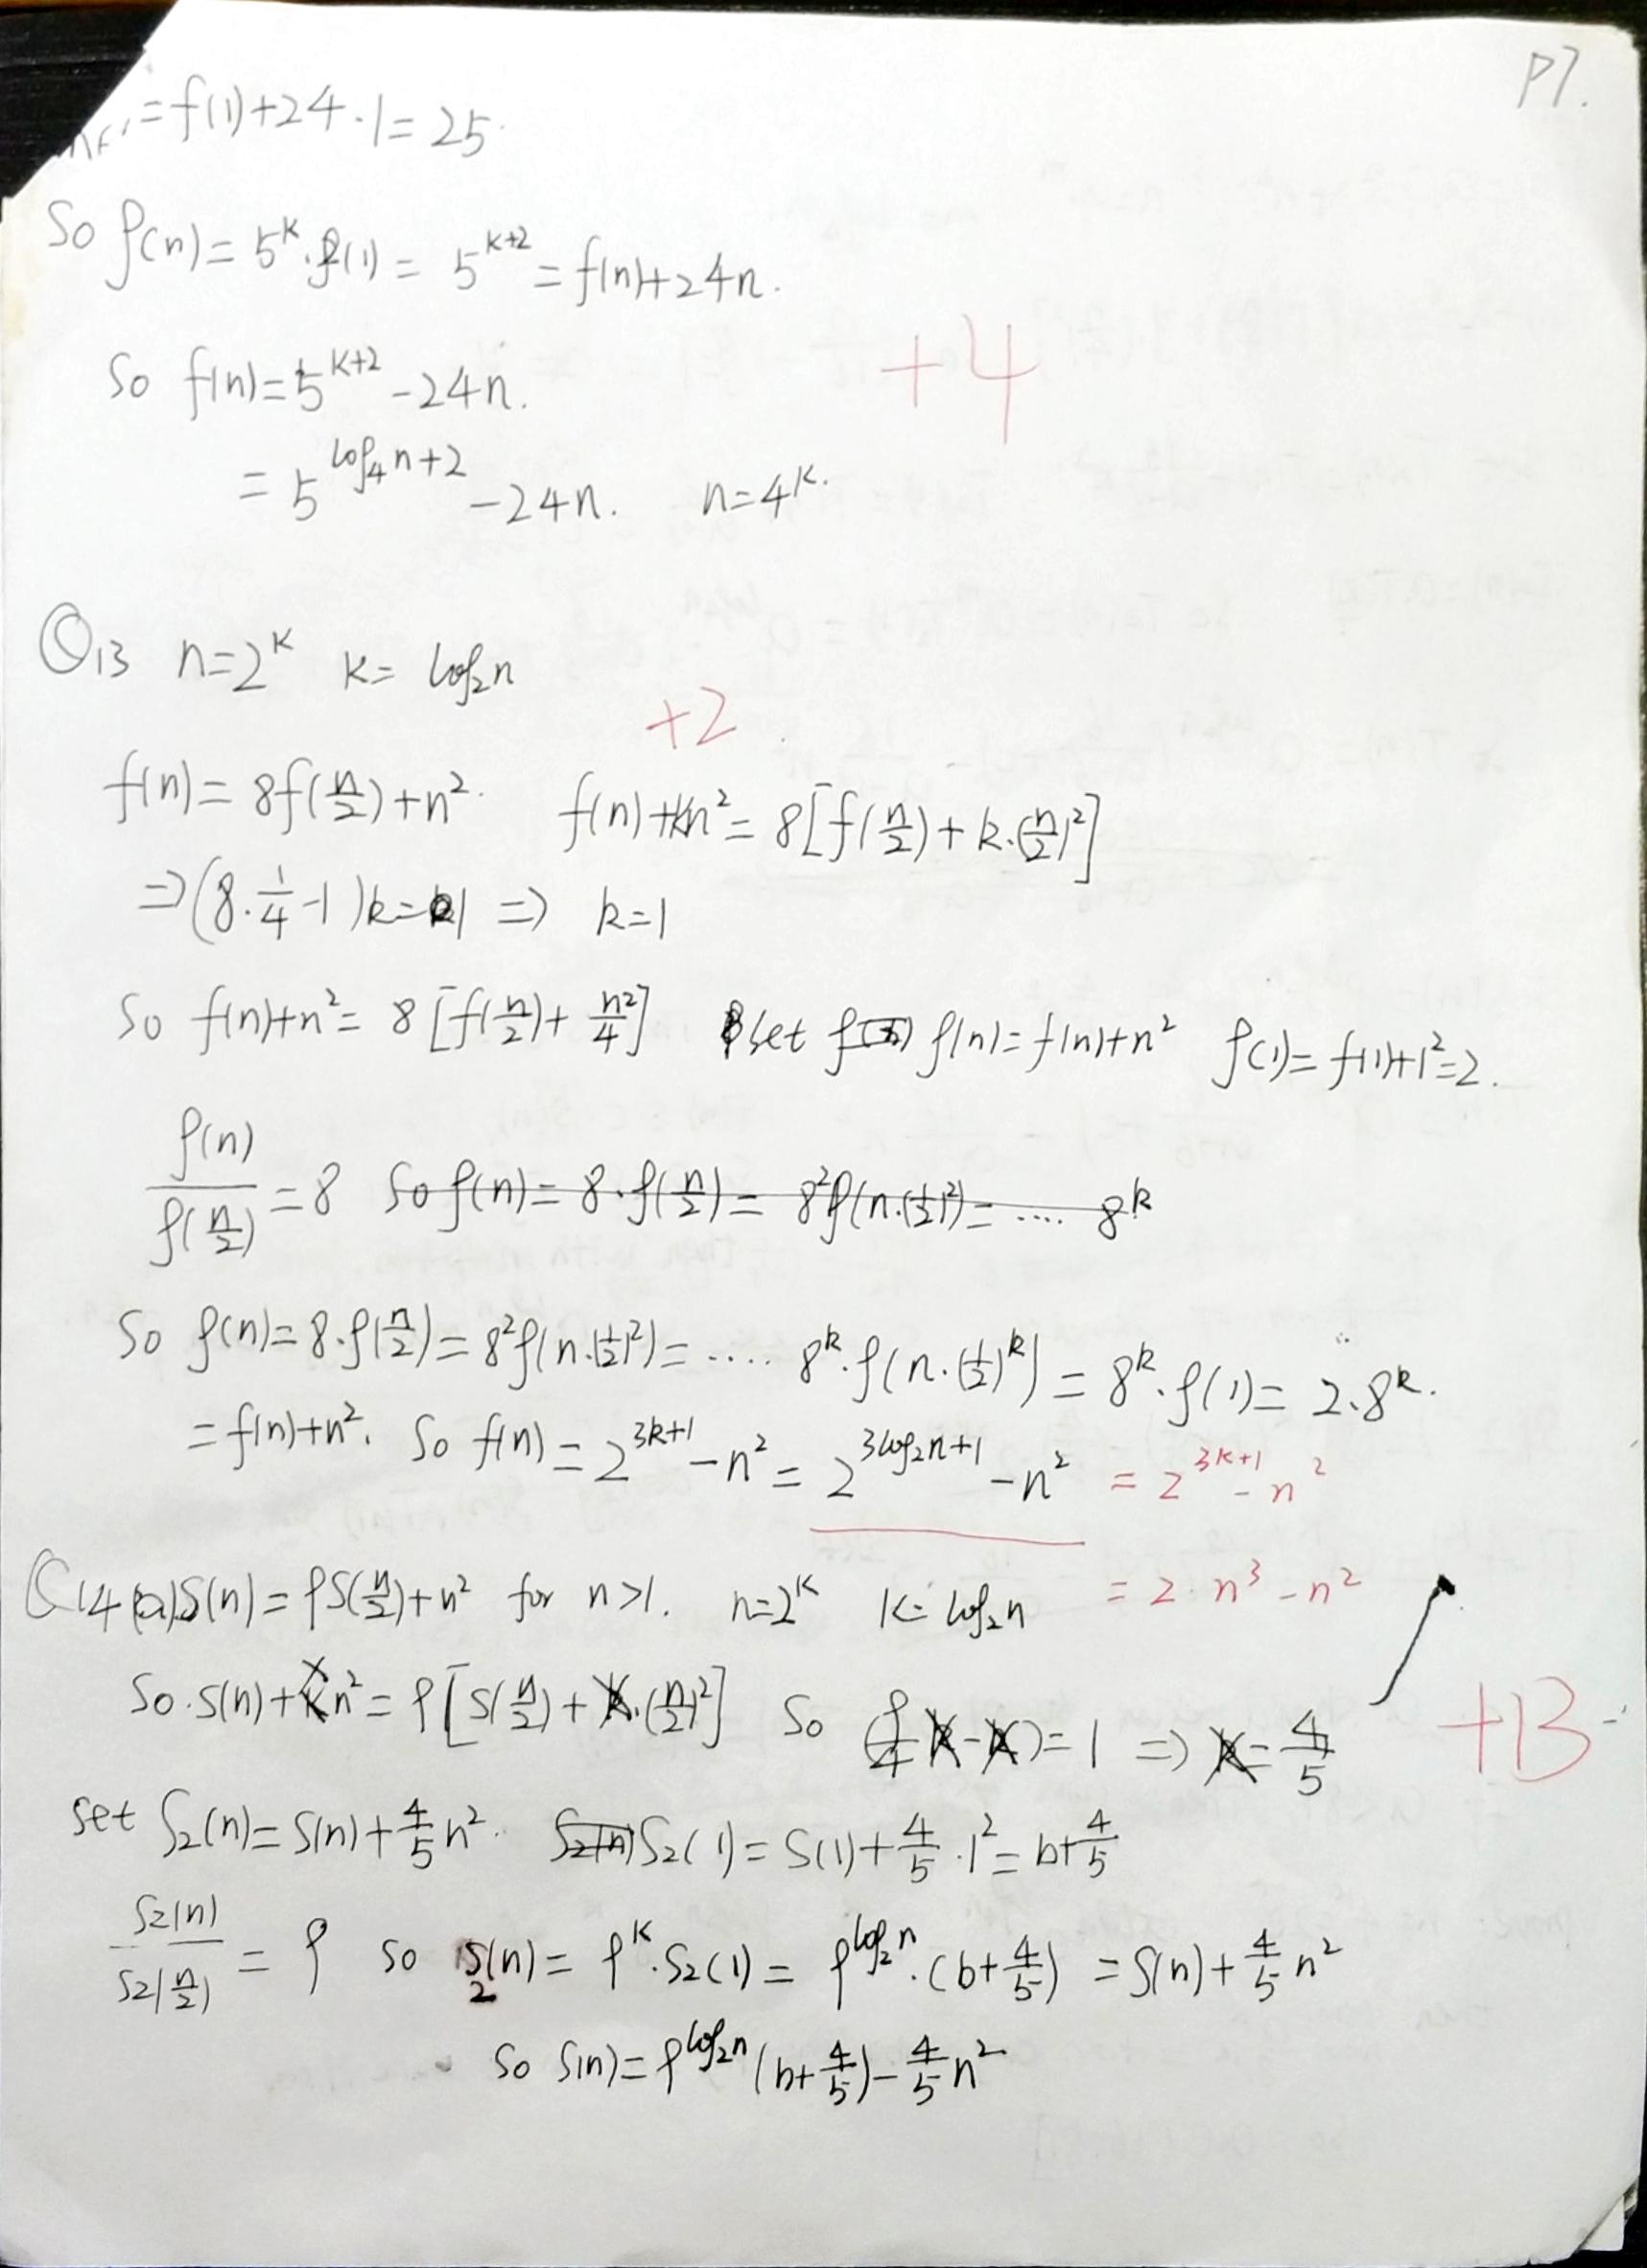 P7.
= f(1)+24·1=25.
So g(n)= 5^k·g(1) = 5^(k+2) = f(n)+24n.
So f(n)=5^(k+2) -24n.
+4
= 5^(log₄n+2) -24n. n=4^k.
Q13 n=2^k k= log₂n
+2
f(n)= 8f(n/2)+n². f(n)+kn²= 8[f(n/2)+k·(n/2)²]
⇒(8·1/4-1)k=1 ⇒ k=1
So f(n)+n²= 8[f(n/2)+n²/4] set g(n)=f(n)+n² g(1)= f(1)+1²=2.
g(n)/g(n/2)=8 So g(n)= 8·g(n/2)= 8²g(n·(1/2)²)= .... 8^k
So g(n)=8·g(n/2)= 8²g(n·(1/2)²)= .... 8^k·g(n·(1/2)^k) = 8^k·g(1)= 2·8^k.
=f(n)+n². So f(n)=2^(3k+1)-n²= 2^(3log₂n+1)-n² = 2^(3k+1)-n²
= 2·n³-n²
Q14(a)S(n)=9S(n/2)+n² for n>1. n=2^k k=log₂n
So S(n)+xn²=9[S(n/2)+x·(n/2)²] So (9/4x-x)=1 ⇒ x=4/5
+13
set S₂(n)=S(n)+4/5n². S₂(n) S₂(1)= S(1)+4/5·1²= b+4/5
S₂(n)/S₂(n/2) = 9 so S₂(n)= 9^k·S₂(1)= 9^(log₂n)·(b+4/5) =S(n)+4/5n²
So S(n)=9^(log₂n)(b+4/5)-4/5n²